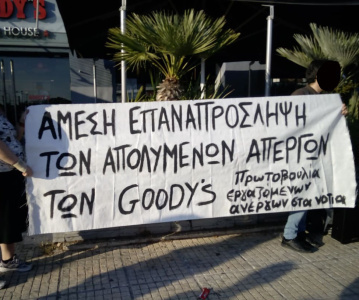 DY'S
HOUSE
ΑΜΕΣΗ ΕΠΑΝΑΠΡΟΣΛΗΨΗ
ΤΩΝ ΑΠΟΛΥΜΕΝΩΝ ΑΠΕΡΓΩΝ
ΤΩΝ GOODY'S
ΠρωτοβουΛία
εργαζομένων
ανέργων στα νότια